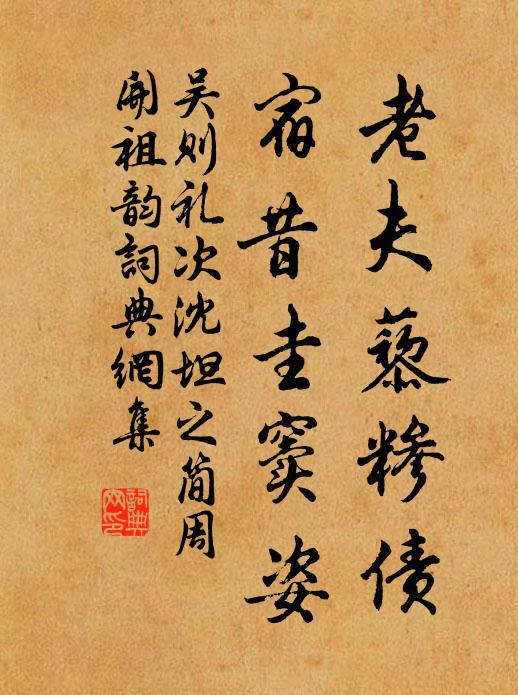 老夫藜糁债
宿昔圭窦姿
吴则礼次沈坦之简周
开祖韵詞典網集
詞典网印